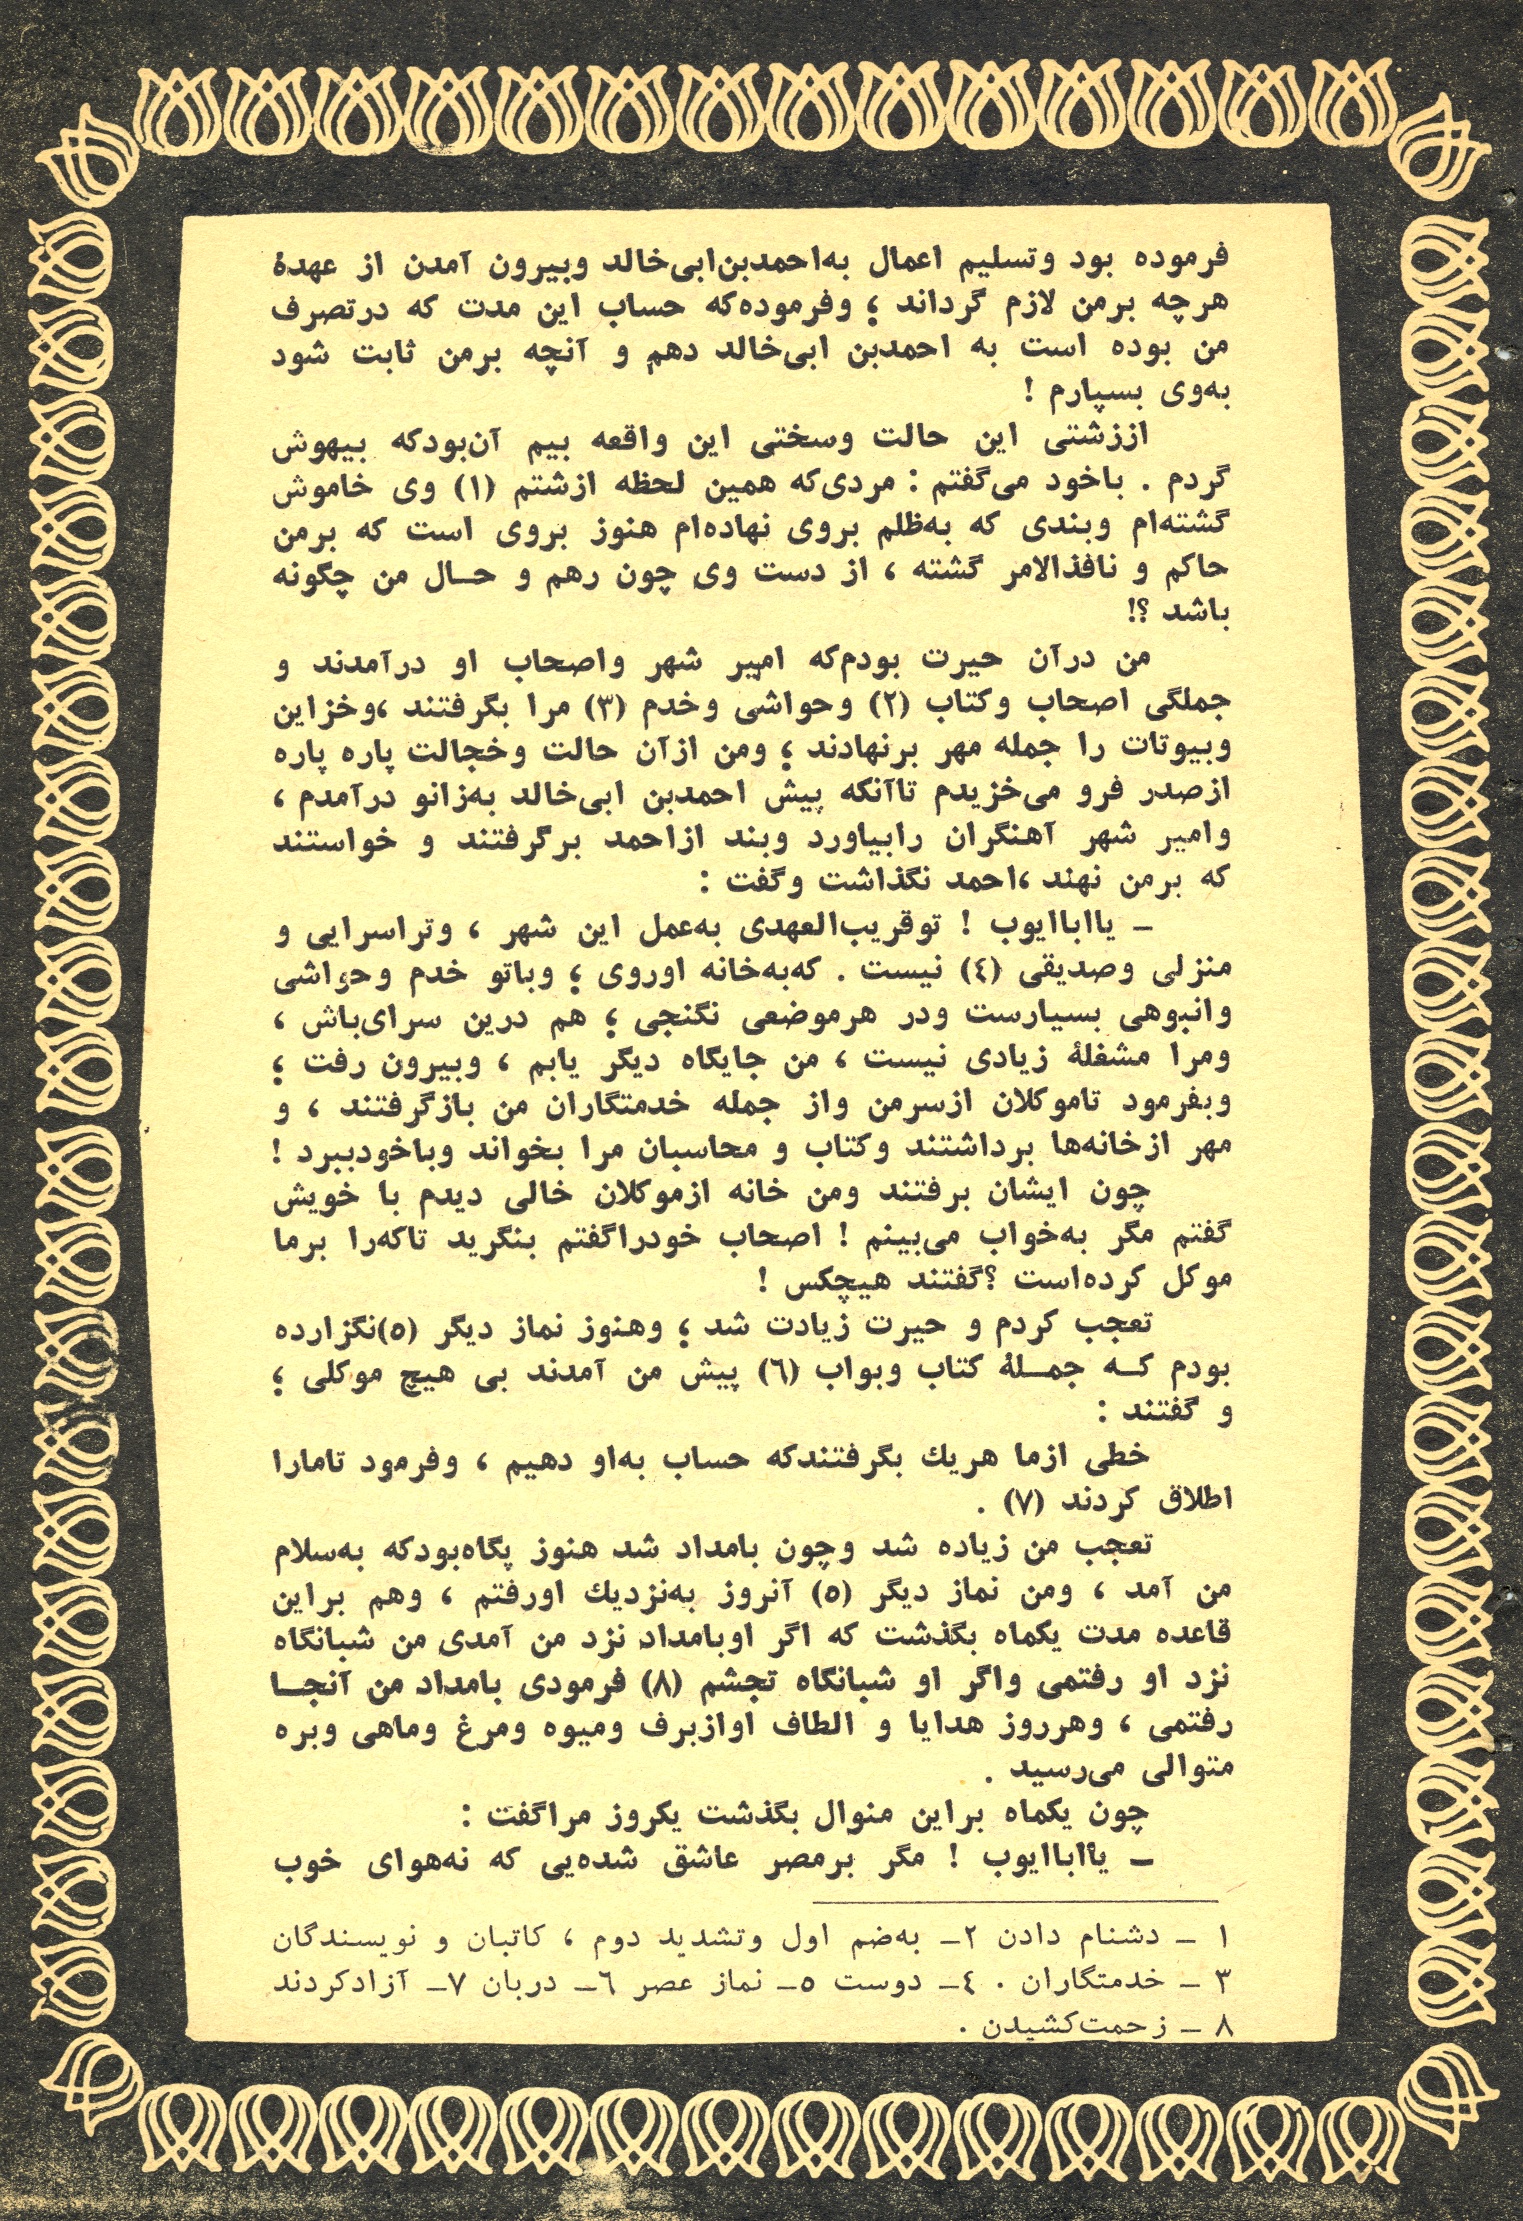 فرموده بود وتسلیم اعمال به‌احمدبن‌ابی‌خالد وبیرون آمدن از عهدهٔ
هرچه برمن لازم گرداند ؛ وفرموده‌که حساب این مدت که درتصرف
من بوده است به احمدبن ابی‌خالد دهم و آنچه برمن ثابت شود
به‌وی بسپارم !
اززشتی این حالت وسختی این واقعه بیم آن‌بودکه بیهوش
گردم . باخود می‌گفتم : مردی‌که همین لحظه ازشتم (۱) وی خاموش
گشته‌ام وبندی که به‌ظلم بروی نهاده‌ام هنوز بروی است که برمن
حاکم و نافذالامر گشته ، از دست وی چون رهم و حـال من چگونه
باشد ؟!
من درآن حیرت بودم‌که امیر شهر واصحاب او درآمدند و
جملگی اصحاب وکتاب (۲) وحواشی وخدم (۳) مرا بگرفتند ،وخزاین
وبیوتات را جمله مهر برنهادند ؛ ومن ازآن حالت وخجالت پاره پاره
ازصدر فرو می‌خزیدم تاآنکه پیش احمدبن ابی‌خالد به‌زانو درآمدم ،
وامیر شهر آهنگران رابیاورد وبند ازاحمد برگرفتند و خواستند
که برمن نهند ،احمد نگذاشت وگفت :
ـ یااباایوب ! توقریب‌العهدی به‌عمل این شهر ، وتراسرایی و
منزلی وصدیقی (٤) نیست . که‌به‌خانه اوروی ؛ وباتو خدم وحواشی
وانبوهی بسیارست ودر هرموضعی نگنجی ؛ هم درین سرای‌باش ،
ومرا مشغلهٔ زیادی نیست ، من جایگاه دیگر یابم ، وبیرون رفت ؛
وبفرمود تاموکلان ازسرمن واز جمله خدمتگاران من بازگرفتند ، و
مهر ازخانه‌ها برداشتند وکتاب و محاسبان مرا بخواند وباخودببرد !
چون ایشان برفتند ومن خانه ازموکلان خالی دیدم با خویش
گفتم مگر به‌خواب می‌بینم ! اصحاب خودراگفتم بنگرید تاکه‌را برما
موکل کرده‌است ؟گفتند هیچکس !
تعجب کردم و حیرت زیادت شد ؛ وهنوز نماز دیگر (۵)نگزارده
بودم کـه جمـلهٔ کتاب وبواب (٦) پیش من آمدند بی هیچ موکلی ؛
و گفتند :
خطی ازما هریك بگرفتندکه حساب به‌او دهیم ، وفرمود تامارا
اطلاق کردند (۷) .
تعجب من زیاده شد وچون بامداد شد هنوز پگاه‌بودکه به‌سلام
من آمد ، ومن نماز دیگر (۵) آنروز به‌نزدیك اورفتم ، وهم براین
قاعده مدت یکماه بگذشت که اگر اوبامداد نزد من آمدی من شبانگاه
نزد او رفتمی واگر او شبانگاه تجشم (۸) فرمودی بامداد من آنجـا
رفتمی ، وهرروز هدایا و الطاف اوازبرف ومیوه ومرغ وماهی وبره
متوالی می‌رسید .
چون یکماه براین منوال بگذشت یکروز مراگفت :
ـ یااباایوب ! مگر برمصر عاشق شده‌یی که نه‌هوای خوب
۱ ـ دشنام دادن ۲ـ به‌ضم اول وتشدید دوم ، کاتبان و نویسندگان
۳ ـ خدمتگاران . ٤ـ دوست ۵ـ نماز عصر ٦ـ دربان ۷ـ آزادکردند
۸ ـ زحمت‌کشیدن .